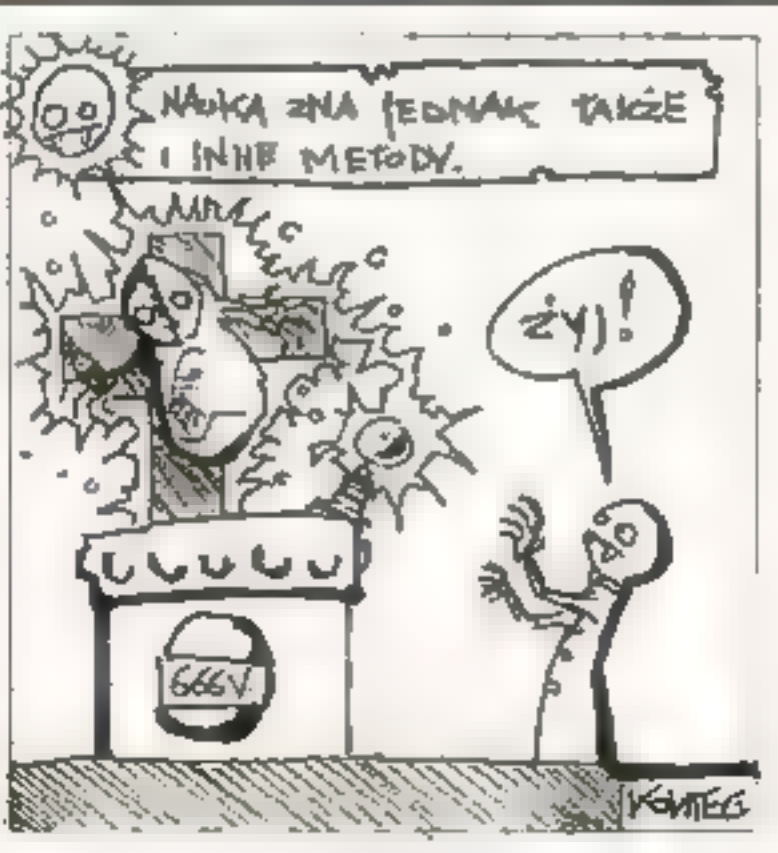 NAUKA ZNA JEDNAK TAKŻE
I INNE METODY.
ŻYJ!
666V